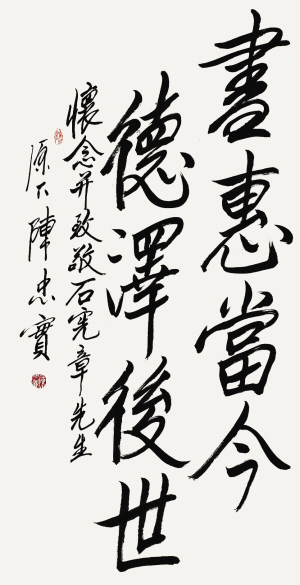 書惠當今
德澤後世
懷念并致敬石宪章先生
原下陳忠實